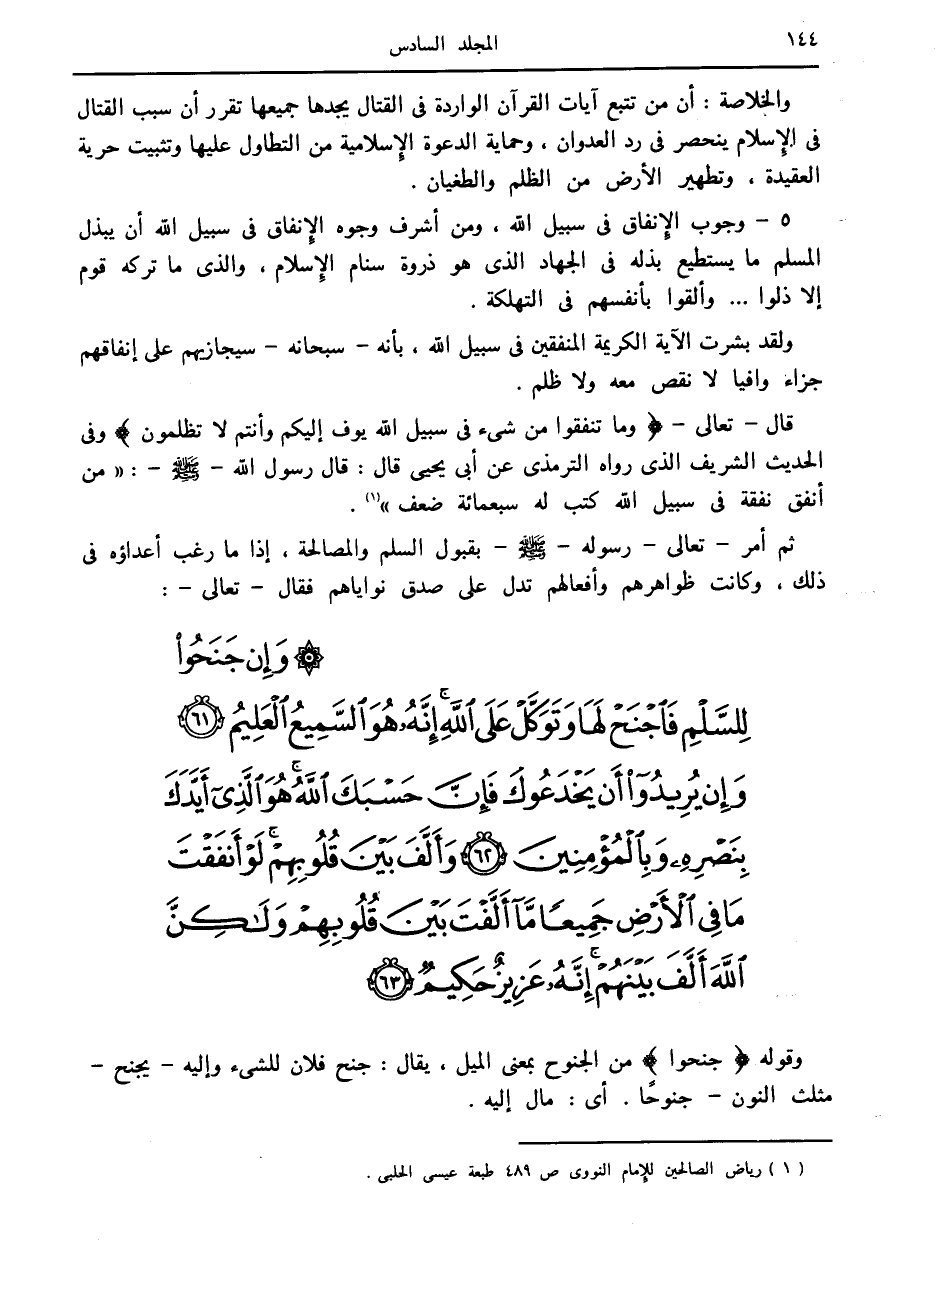 ١٤٤ المجلد السادس
والخلاصة : أن من تتبع آيات القرآن الواردة فى القتال يجدها جميعها تقرر أن سبب القتال
فى الإسلام ينحصر فى رد العدوان ، وحماية الدعوة الإسلامية من التطاول عليها وتثبيت حرية
العقيدة ، وتطهير الأرض من الظلم والطغيان .
٥ - وجوب الإنفاق فى سبيل الله ، ومن أشرف وجوه الإنفاق فى سبيل الله أن يبذل
المسلم ما يستطيع بذله فى الجهاد الذى هو ذروة سنام الإسلام ، والذى ما تركه قوم
إلا ذلوا ... وألقوا بأنفسهم فى التهلكة .
ولقد بشرت الآية الكريمة المنفقين فى سبيل الله ، بأنه - سبحانه - سيجازيهم على إنفاقهم
جزاء وافيا لا نقص معه ولا ظلم .
قال - تعالى - ﴿ وما تنفقوا من شىء فى سبيل الله يوف إليكم وأنتم لا تظلمون ﴾ وفى
الحديث الشريف الذى رواه الترمذى عن أبى يحيى قال : قال رسول الله - ﷺ - : « من
أنفق نفقة فى سبيل الله كتب له سبعمائة ضعف »(١) .
ثم أمر - تعالى - رسوله - ﷺ - بقبول السلم والمصالحة ، إذا ما رغب أعداؤه فى
ذلك ، وكانت ظواهرهم وأفعالهم تدل على صدق نواياهم فقال - تعالى - :
۞ وَإِن جَنَحُوا۟
لِلسَّلْمِ فَٱجْنَحْ لَهَا وَتَوَكَّلْ عَلَى ٱللَّهِ ۚ إِنَّهُۥ هُوَ ٱلسَّمِيعُ ٱلْعَلِيمُ ﴿٦١﴾
وَإِن يُرِيدُوٓا۟ أَن يَخْدَعُوكَ فَإِنَّ حَسْبَكَ ٱللَّهُ ۚ هُوَ ٱلَّذِىٓ أَيَّدَكَ
بِنَصْرِهِۦ وَبِٱلْمُؤْمِنِينَ ﴿٦٢﴾ وَأَلَّفَ بَيْنَ قُلُوبِهِمْ ۚ لَوْ أَنفَقْتَ
مَا فِى ٱلْأَرْضِ جَمِيعًا مَّآ أَلَّفْتَ بَيْنَ قُلُوبِهِمْ وَلَـٰكِنَّ
ٱللَّهَ أَلَّفَ بَيْنَهُمْ ۚ إِنَّهُۥ عَزِيزٌ حَكِيمٌ ﴿٦٣﴾
وقوله ﴿ جنحوا ﴾ من الجنوح بمعنى الميل ، يقال : جنح فلان للشىء وإليه - يجنح -
مثلث النون - جنوحًا . أى : مال إليه .
( ١ ) رياض الصالحين للإمام النووى ص ٤٨٩ طبعة عيسى الحلبى .